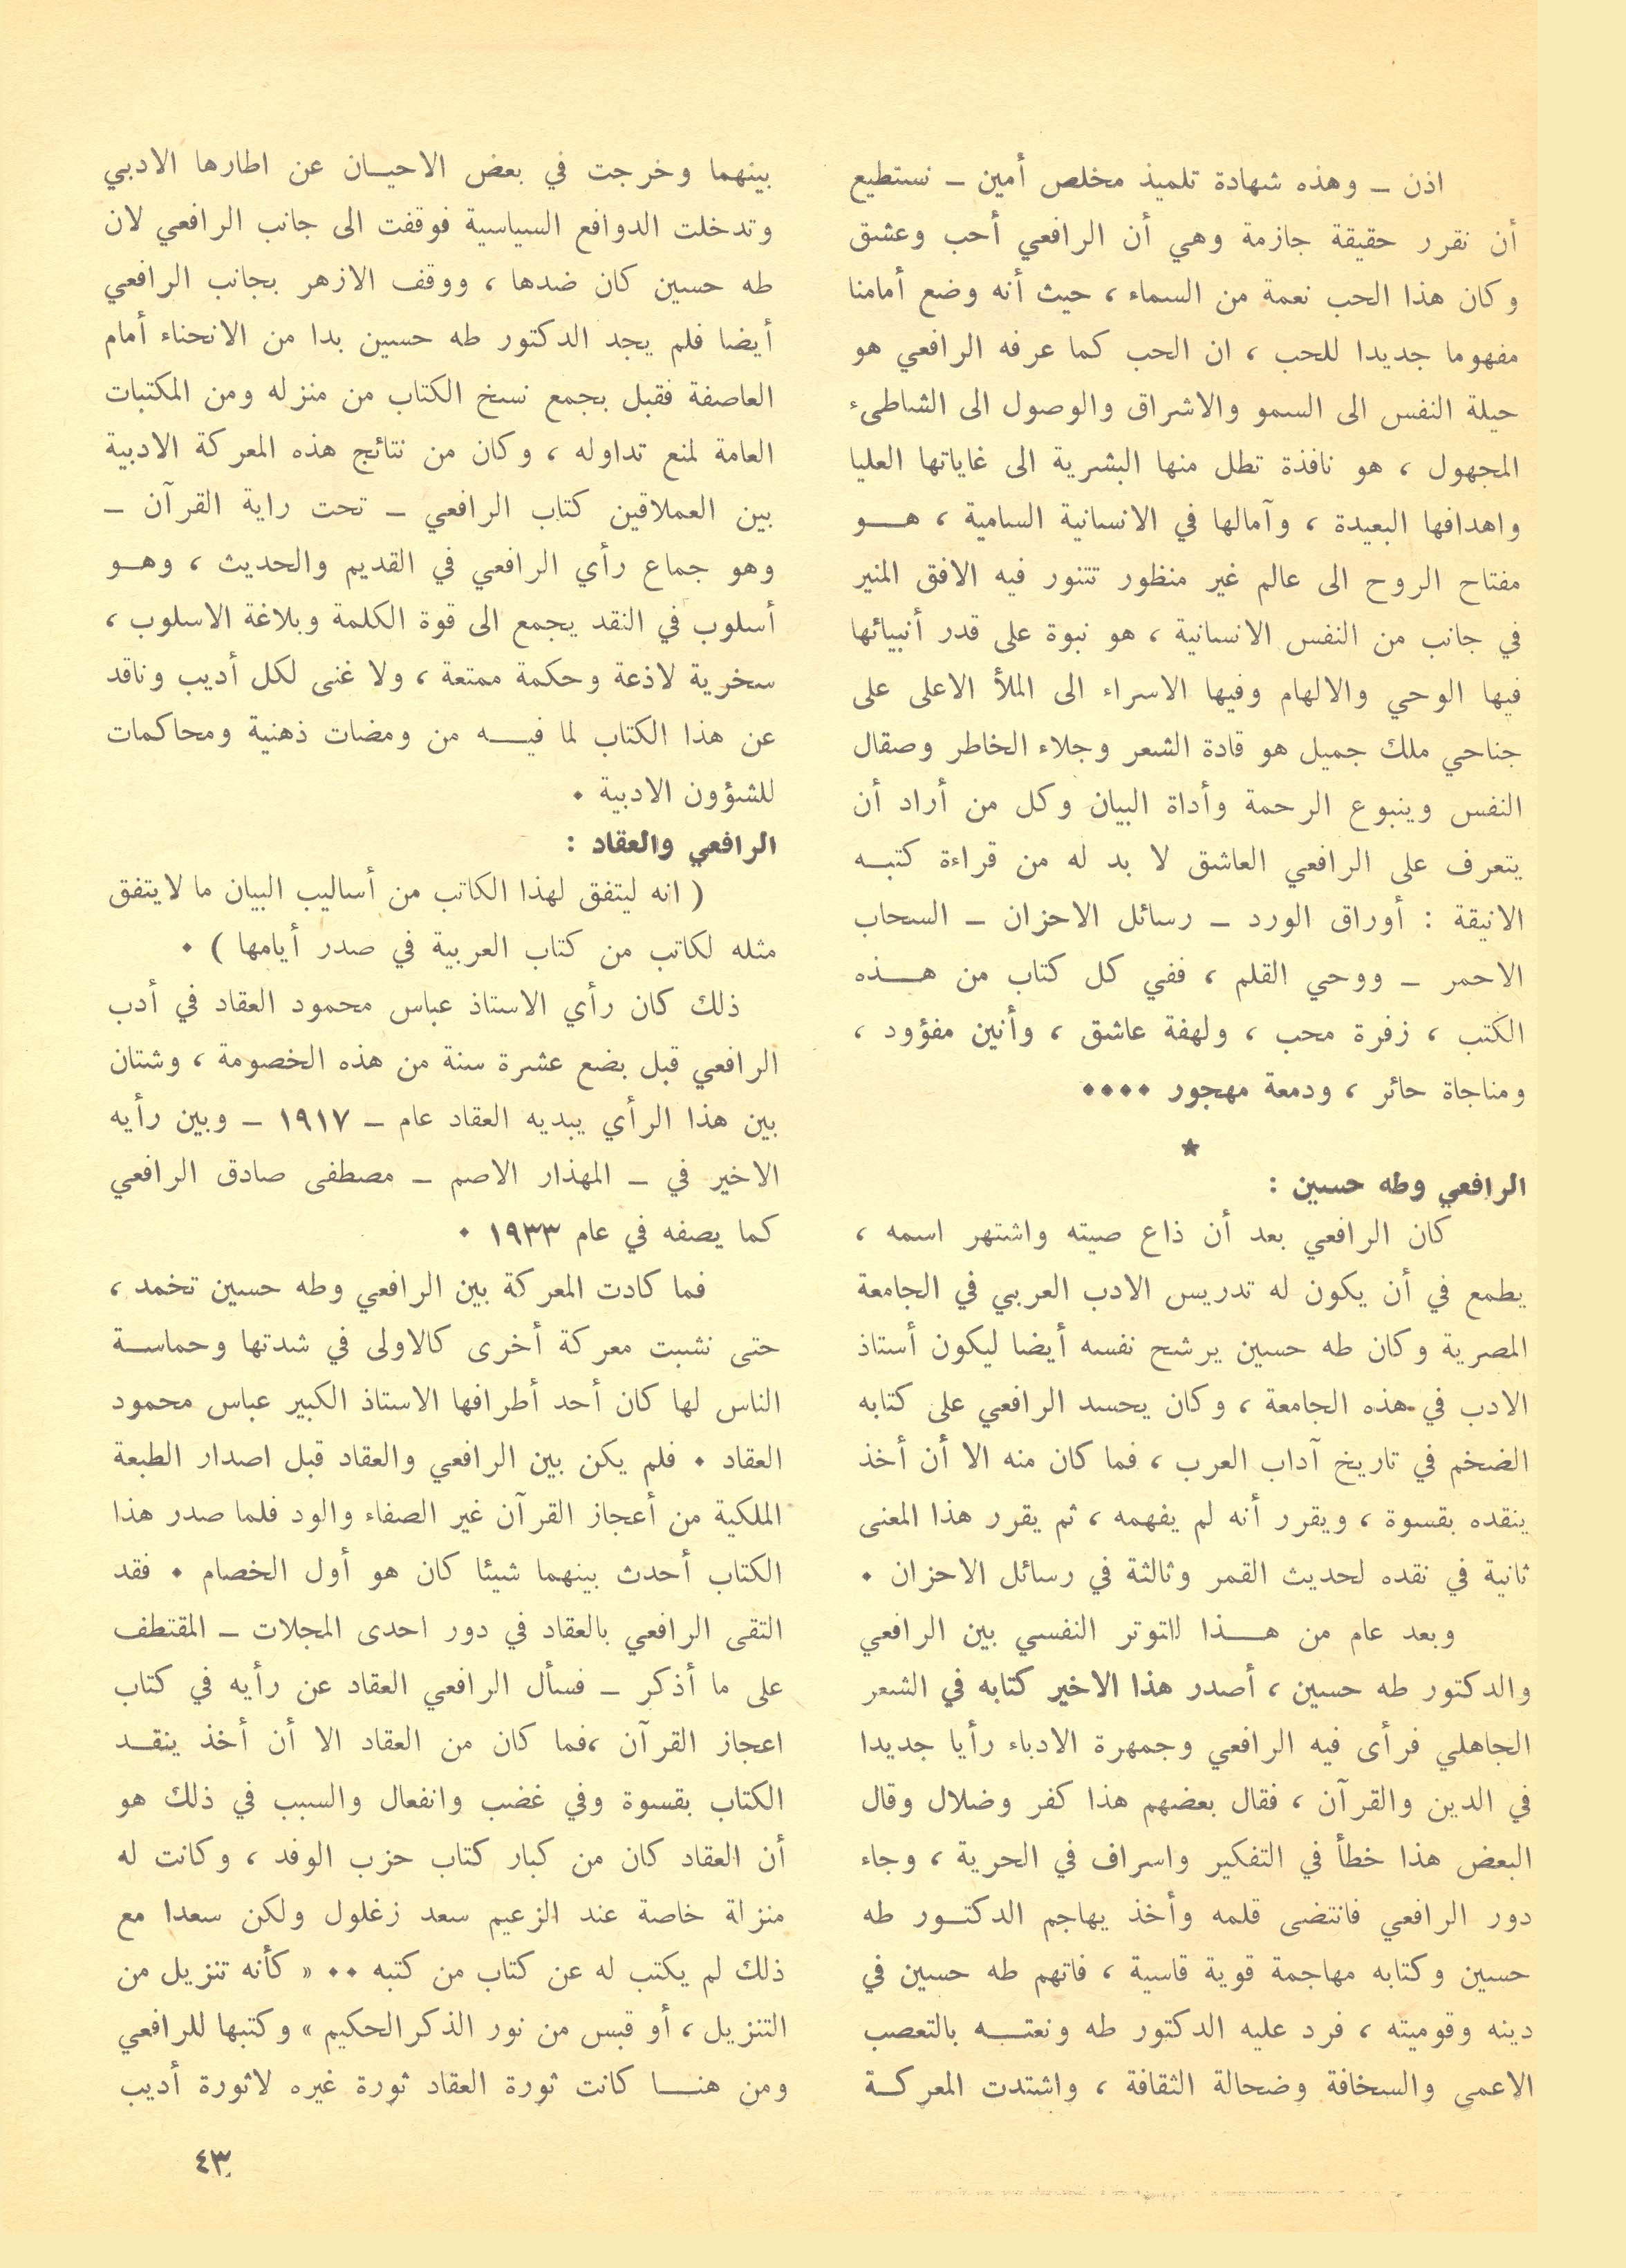 اذن ــ وهذه شهادة تلميذ مخلص أمين ــ نستطيع
أن نقرر حقيقة جازمة وهي أن الرافعي أحب وعشق
وكان هذا الحب نعمة من السماء ، حيث أنه وضع أمامنا
مفهوما جديدا للحب ، ان الحب كما عرفه الرافعي هو
حيلة النفس الى السمو والاشراق والوصول الى الشاطىء
المجهول ، هو نافذة تطل منها البشرية الى غاياتها العليا
واهدافها البعيدة ، وآمالها في الانسانية السامية ، هـو
مفتاح الروح الى عالم غير منظور تتنور فيه الافق المنير
في جانب من النفس الانسانية ، هو نبوة على قدر أنبيائها
فيها الوحي والالهام وفيها الاسراء الى الملأ الاعلى على
جناحي ملك جميل هو قادة الشعر وجلاء الخاطر وصقال
النفس وينبوع الرحمة وأداة البيان وكل من أراد أن
يتعرف على الرافعي العاشق لا بد له من قراءة كتبـه
الانيقة : أوراق الورد ــ رسائل الاحزان ــ السحاب
الاحمر ــ ووحي القلم ، ففي كل كتاب من هـذه
الكتب ، زفرة محب ، ولهفة عاشق ، وأنين مفؤود ،
ومناجاة حائر ، ودمعة مهجور ٠٠٠٠
★
الرافعي وطه حسين :
كان الرافعي بعد أن ذاع صيته واشتهر اسمه ،
يطمع في أن يكون له تدريس الادب العربي في الجامعة
المصرية وكان طه حسين يرشح نفسه أيضا ليكون أستاذ
الادب في هذه الجامعة ، وكان يحسد الرافعي على كتابه
الضخم في تاريخ آداب العرب ، فما كان منه الا أن أخذ
ينقده بقسوة ، ويقرر أنه لم يفهمه ، ثم يقرر هذا المعنى
ثانية في نقده لحديث القمر وثالثة في رسائل الاحزان ٠
وبعد عام من هـذا لاتوتر النفسي بين الرافعي
والدكتور طه حسين ، أصدر هذا الاخير كتابه في الشعر
الجاهلي فرأى فيه الرافعي وجمهرة الادباء رأيا جديدا
في الدين والقرآن ، فقال بعضهم هذا كفر وضلال وقال
البعض هذا خطأ في التفكير واسراف في الحرية ، وجاء
دور الرافعي فانتضى قلمه وأخذ يهاجم الدكتـور طه
حسين وكتابه مهاجمة قوية قاسية ، فاتهم طه حسين في
دينه وقوميته ، فرد عليه الدكتور طه ونعتـه بالتعصب
الاعمى والسخافة وضحالة الثقافة ، واشتدت المعركـة
بينهما وخرجت في بعض الاحيـان عن اطارها الادبي
وتدخلت الدوافع السياسية فوقفت الى جانب الرافعي لان
طه حسين كان ضدها ، ووقف الازهر بجانب الرافعي
أيضا فلم يجد الدكتور طه حسين بدا من الانحناء أمام
العاصفة فقبل بجمع نسخ الكتاب من منزله ومن المكتبات
العامة لمنع تداوله ، وكان من نتائج هذه المعركة الادبية
بين العملاقين كتاب الرافعي ــ تحت راية القرآن ــ
وهو جماع رأي الرافعي في القديم والحديث ، وهـو
أسلوب في النقد يجمع الى قوة الكلمة وبلاغة الاسلوب ،
سخرية لاذعة وحكمة ممتعة ، ولا غنى لكل أديب وناقد
عن هذا الكتاب لما فيـه من ومضات ذهنية ومحاكمات
للشؤون الادبية ٠
الرافعي والعقاد :
( انه ليتفق لهذا الكاتب من أساليب البيان ما لايتفق
مثله لكاتب من كتاب العربية في صدر أيامها ) ٠
ذلك كان رأي الاستاذ عباس محمود العقاد في أدب
الرافعي قبل بضع عشرة سنة من هذه الخصومة ، وشتان
بين هذا الرأي يبديه العقاد عام ــ ١٩١٧ ــ وبين رأيه
الاخير في ــ المهذار الاصم ــ مصطفى صادق الرافعي
كما يصفه في عام ١٩٣٣ ٠
فما كادت المعركة بين الرافعي وطه حسين تخمد ،
حتى نشبت معركة أخرى كالاولى في شدتها وحماسـة
الناس لها كان أحد أطرافها الاستاذ الكبير عباس محمود
العقاد ٠ فلم يكن بين الرافعي والعقاد قبل اصدار الطبعة
الملكية من أعجاز القرآن غير الصفاء والود فلما صدر هذا
الكتاب أحدث بينهما شيئا كان هو أول الخصام ٠ فقد
التقى الرافعي بالعقاد في دور احدى المجلات ــ المقتطف
على ما أذكر ــ فسأل الرافعي العقاد عن رأيه في كتاب
اعجاز القرآن ،فما كان من العقاد الا أن أخذ ينقـد
الكتاب بقسوة وفي غضب وانفعال والسبب في ذلك هو
أن العقاد كان من كبار كتاب حزب الوفد ، وكانت له
منزلة خاصة عند الزعيم سعد زغلول ولكن سعدا مع
ذلك لم يكتب له عن كتاب من كتبه ٠٠ « كأنه تنزيل من
التنزيل ، أو قبس من نور الذكر الحكيم » وكتبها للرافعي
ومن هنـا كانت ثورة العقاد ثورة غيره لاثورة أديب
٤٣